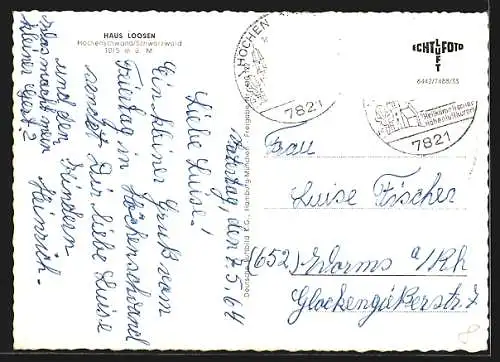 HAUS LOOSEN
Höchenschwand/Schwarzwald
1015 m ü. M
ECHT LUFT FOTO
6442/7488/35
HÖCHEN
7821
Heilklimatischer
Höhenluftkurort
7821
Deutsche Luftbild K.G., Hamburg-München - Freigegeben
Montag, den 7.5.64
Liebe Luise!
Ein kleiner Gruß vom
Feiertag in Höchenschwand
sendet Dir liebe Luise
und den Kindern
Heinrich.
Was macht mein
kleiner Gert?
Frau
Luise Fischer
(652) Worms a/Rh
Glockengießerstr. 7